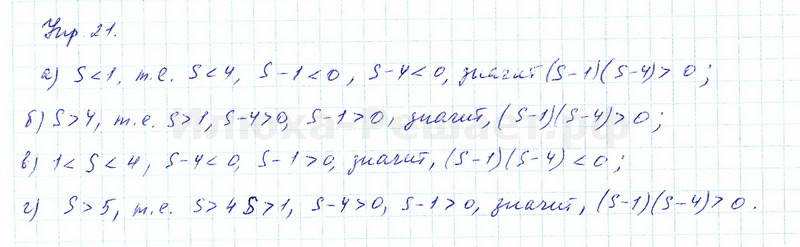 Упр. 21.
а) S<1, т.е. S<4, S-1<0, S-4<0, значит (S-1)(S-4)>0;
б) S>4, т.е. S>1, S-4>0, S-1>0, значит, (S-1)(S-4)>0;
Илюха-Решает.рф
в) 1<S<4, S-4<0, S-1>0, значит, (S-1)(S-4)<0;
г) S>5, т.е. S>4 S>1, S-4>0, S-1>0, значит, (S-1)(S-4)>0.